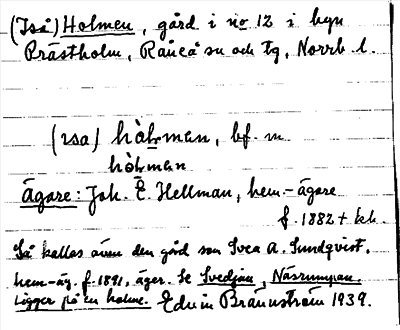 (Iså) Holmen, gård i nr 12 i byn
Prästholm, Råneå sn och tg, Norrb. l.
(ɪsa) hòlmən, bf. m.
hòlmən
Ägare: Joh. E. Hellman, hem.-ägare
f. 1882 +
Så kallas även den gård som Svea A. Sundqvist,
hem.-äg. f. 1891, äger. Se Svedjan, Näsrumpan.
Ligger på en holme. Edvin Brännström 1939.